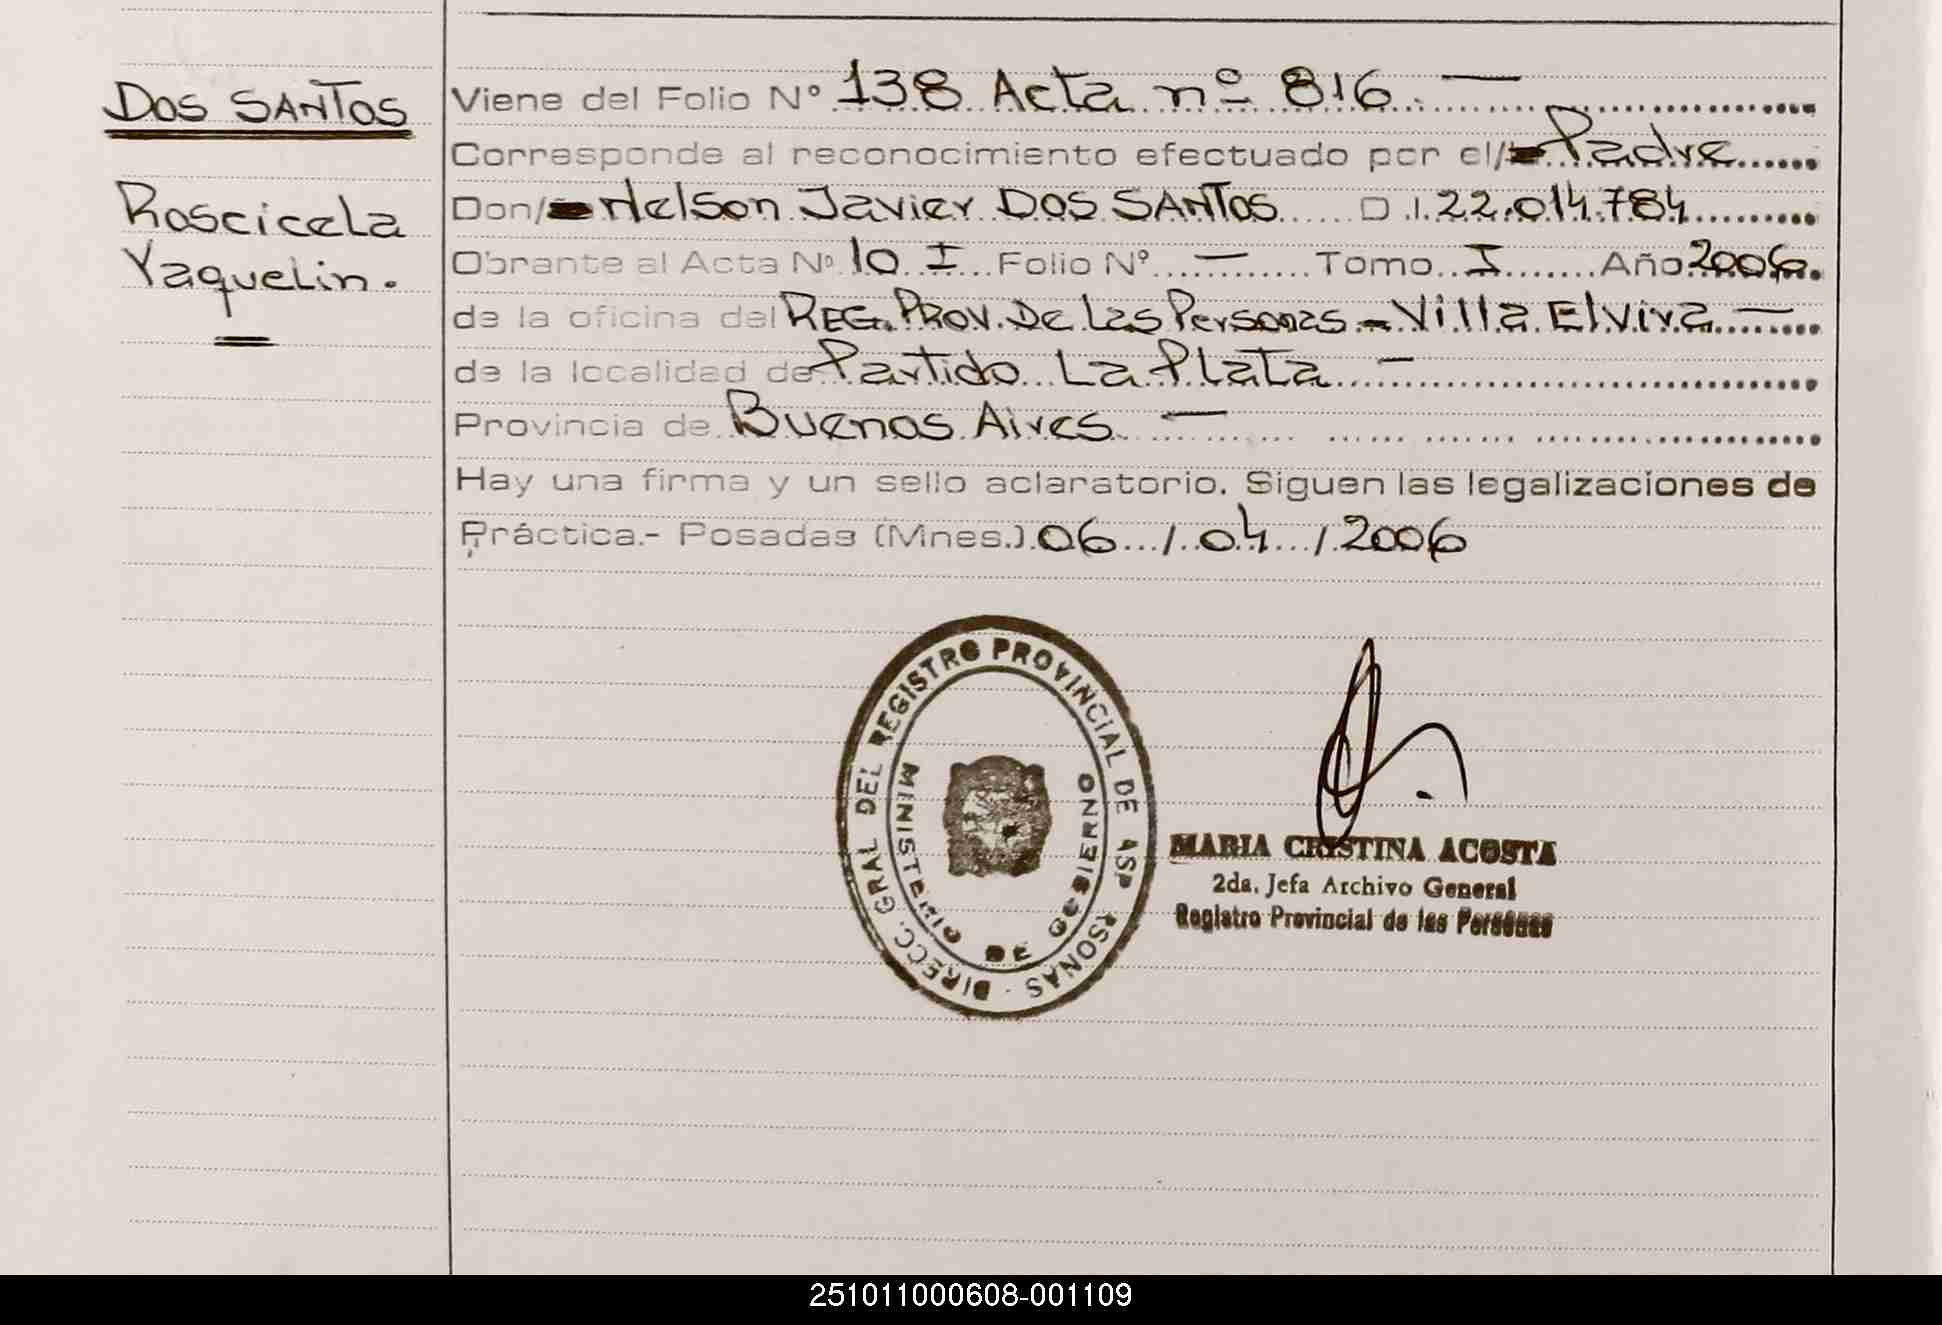 DOS SANTOS
Roscicela
Yaquelin.
Viene del Folio N° 138 Acta nº 816. —
Corresponde al reconocimiento efectuado por el/ Padre
Don/ Nelson Javier DOS SANTOS D.I. 22.014.784
Obrante al Acta N° 10 I Folio N° — Tomo I Año 2006.
de la oficina del REG. PROV. De Las Personas - Villa Elvira —
de la localidad de Partido La Plata —
Provincia de Buenos Aires. —
Hay una firma y un sello aclaratorio. Siguen las legalizaciones de
Práctica.- Posadas (Mnes.) 06 / 04 / 2006
DIRECC. GRAL DEL REGISTRO PROVINCIAL DE ASP RSONAS
MINISTERIO DE GOBIERNO
MARIA CRISTINA ACOSTA
2da. Jefa Archivo General
Registro Provincial de las Personas
251011000608-001109